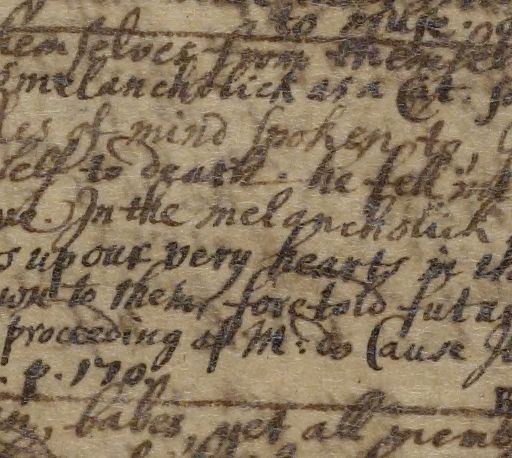 to muse.
themselves from themsel
melancholick as a Cat.
les of mind spoken to,
self to death. he fell
In the melancholick
s up our very hearts in
to them, foretold futur
proceeding of Mr: do Cause
. p. 170.
babes, yet all memb